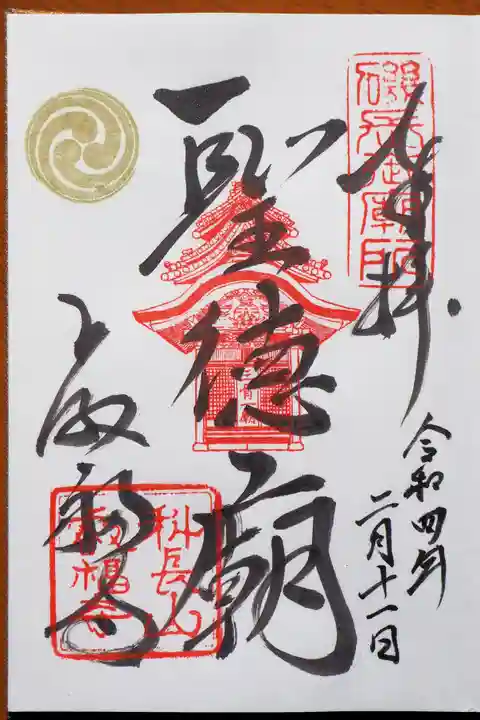 奉拝
令和四年
二月十一日
聖徳廟
上之太子
磯長御廟印
科長山
叡福寺